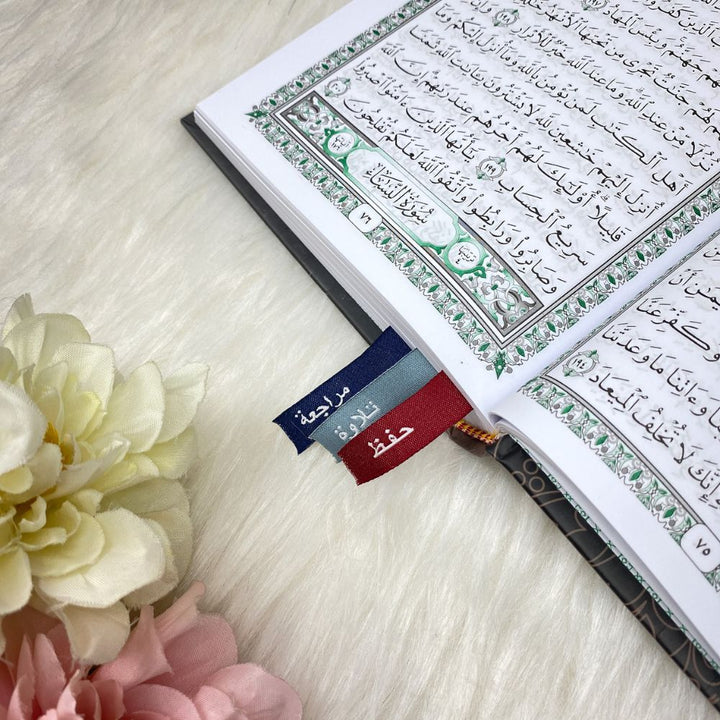 جَهَنَّمُ وَبِئْسَ الْمِهَادُ
لَهُمْ جَنَّاتٌ تَجْرِي مِن تَحْتِهَا الْأَنْهَارُ
نُزُلًا مِّنْ عِندِ اللَّهِ وَمَا عِندَ اللَّهِ خَيْرٌ لِّلْأَبْرَارِ ١٩٨
أَهْلِ الْكِتَابِ لَمَن يُؤْمِنُ بِاللَّهِ وَمَا أُنزِلَ إِلَيْكُمْ وَمَا
أُنزِلَ إِلَيْهِمْ خَاشِعِينَ لِلَّهِ لَا يَشْتَرُونَ بِآيَاتِ اللَّهِ ثَمَنًا
قَلِيلًا أُولَٰئِكَ لَهُمْ أَجْرُهُمْ عِندَ رَبِّهِمْ إِنَّ اللَّهَ
سَرِيعُ الْحِسَابِ ١٩٩ يَا أَيُّهَا الَّذِينَ آمَنُوا اصْبِرُوا
وَصَابِرُوا وَرَابِطُوا وَاتَّقُوا اللَّهَ لَعَلَّكُمْ تُفْلِحُونَ
سُورَةُ النِّسَاءِ
٧٦
وَءَاتِنَا مَا وَعَدتَّنَا
إِنَّكَ لَا تُخْلِفُ الْمِيعَادَ ١٩٤
٧٥
مراجعة
تلاوة
حفظ